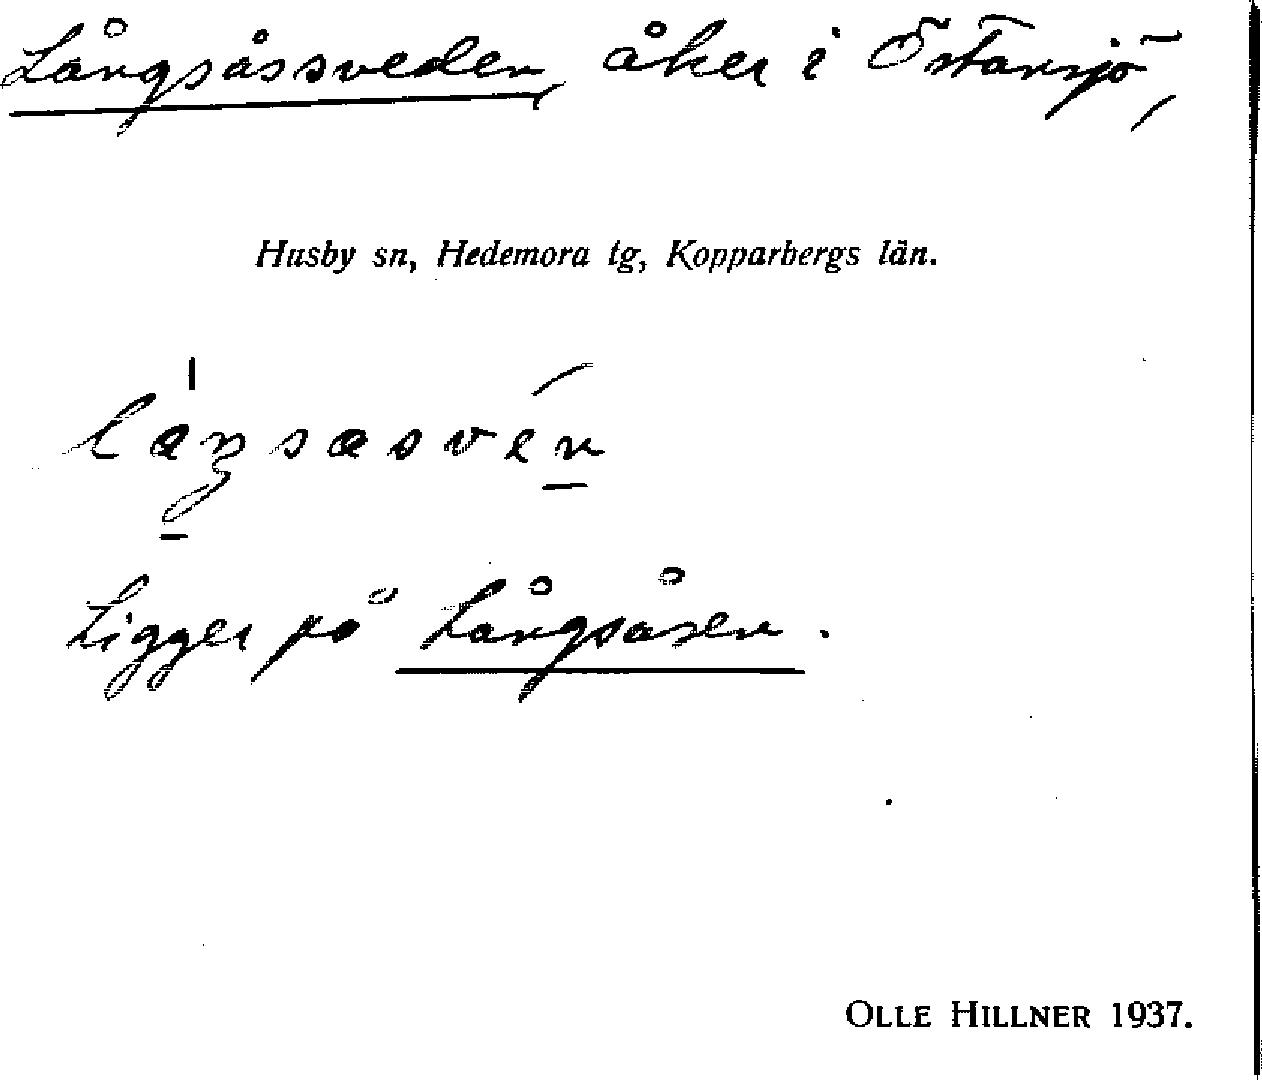 Långsåssveden, åker i Östansjö,
Husby sn, Hedemora tg, Kopparbergs län.
Ligger på Långsåsen.
OLLE HILLNER 1937.